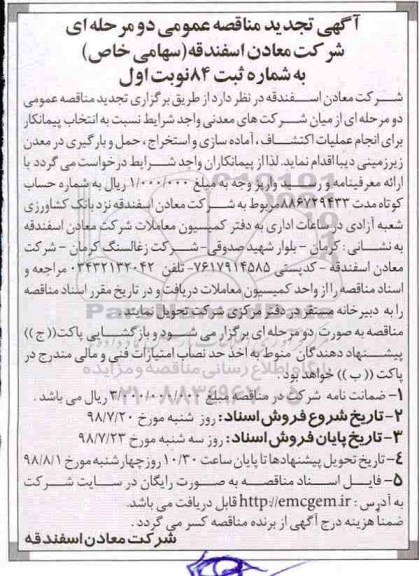 آگهی تجدید مناقصه عمومی دو مرحله ای
شرکت معادن اسفندقه (سهامی خاص)
به شماره ثبت ۸۴ نوبت اول
شرکت معادن اسفندقه در نظر دارد از طریق برگزاری تجدید مناقصه عمومی
دو مرحله ای از میان شرکت های معدنی واجد شرایط نسبت به انتخاب پیمانکار
برای انجام عملیات اکتشاف، آماده سازی و استخراج، حمل و بارگیری در معدن
زیرزمینی دیبا اقدام نماید. لذا از پیمانکاران واجد شرایط درخواست می گردد با
ارائه معرفینامه و رسید واریز وجه به مبلغ ۱/۰۰۰/۰۰۰ ریال به شماره حساب
کوتاه مدت ۸۸۶۷۲۹۴۳۳ مربوط به شرکت معادن اسفندقه نزد بانک کشاورزی
شعبه آزادی در ساعات اداری به دفتر کمیسیون معاملات شرکت معادن اسفندقه
به نشانی: کرمان - بلوار شهید صدوقی - شرکت زغالسنگ کرمان - شرکت
معادن اسفندقه - کدپستی ۷۶۱۷۹۱۴۵۸۵ - تلفن ۰۳۴۳۲۱۳۲۰۴۲ مراجعه و
اسناد مناقصه را از واحد کمیسیون معاملات دریافت و در تاریخ مقرر اسناد مناقصه
را به دبیرخانه مستقر در دفتر مرکزی شرکت تحویل نمایند.
مناقصه به صورت دو مرحله ای برگزار می شود و بازگشایی پاکت((ج))
پیشنهاد دهندگان منوط به اخذ حد نصاب امتیازات فنی و مالی مندرج در
پاکت ((ب)) خواهد بود.
۱- ضمانت نامه شرکت در مناقصه مبلغ ریال می باشد.
۲- تاریخ شروع فروش اسناد: روز شنبه مورخ ۹۸/۷/۲۰
۳- تاریخ پایان فروش اسناد: روز سه شنبه مورخ ۹۸/۷/۲۳
۴- تاریخ تحویل پیشنهادها تا پایان ساعت ۱۰/۳۰ روز چهارشنبه مورخ ۹۸/۸/۱
۵- فایل اسناد مناقصه به صورت رایگان در سایت شرکت
به آدرس: http://emcgem.ir قابل دریافت می باشد.
ضمناً هزینه درج آگهی از برنده مناقصه کسر می گردد.
شرکت معادن اسفندقه